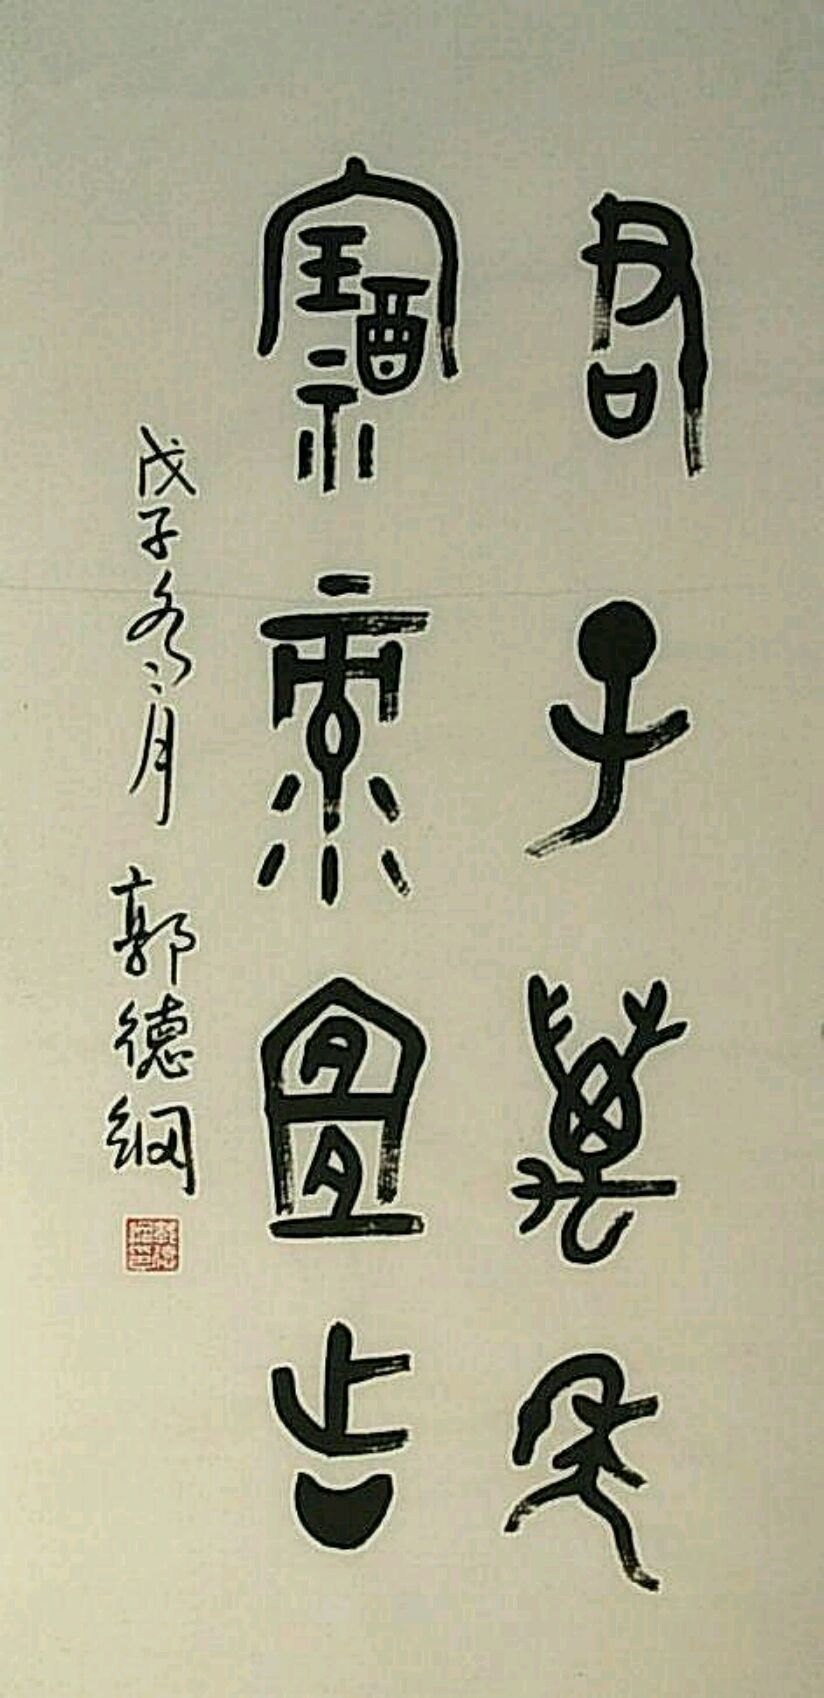 君子萬年
福祿宜之
戊子冬月 郭德綱